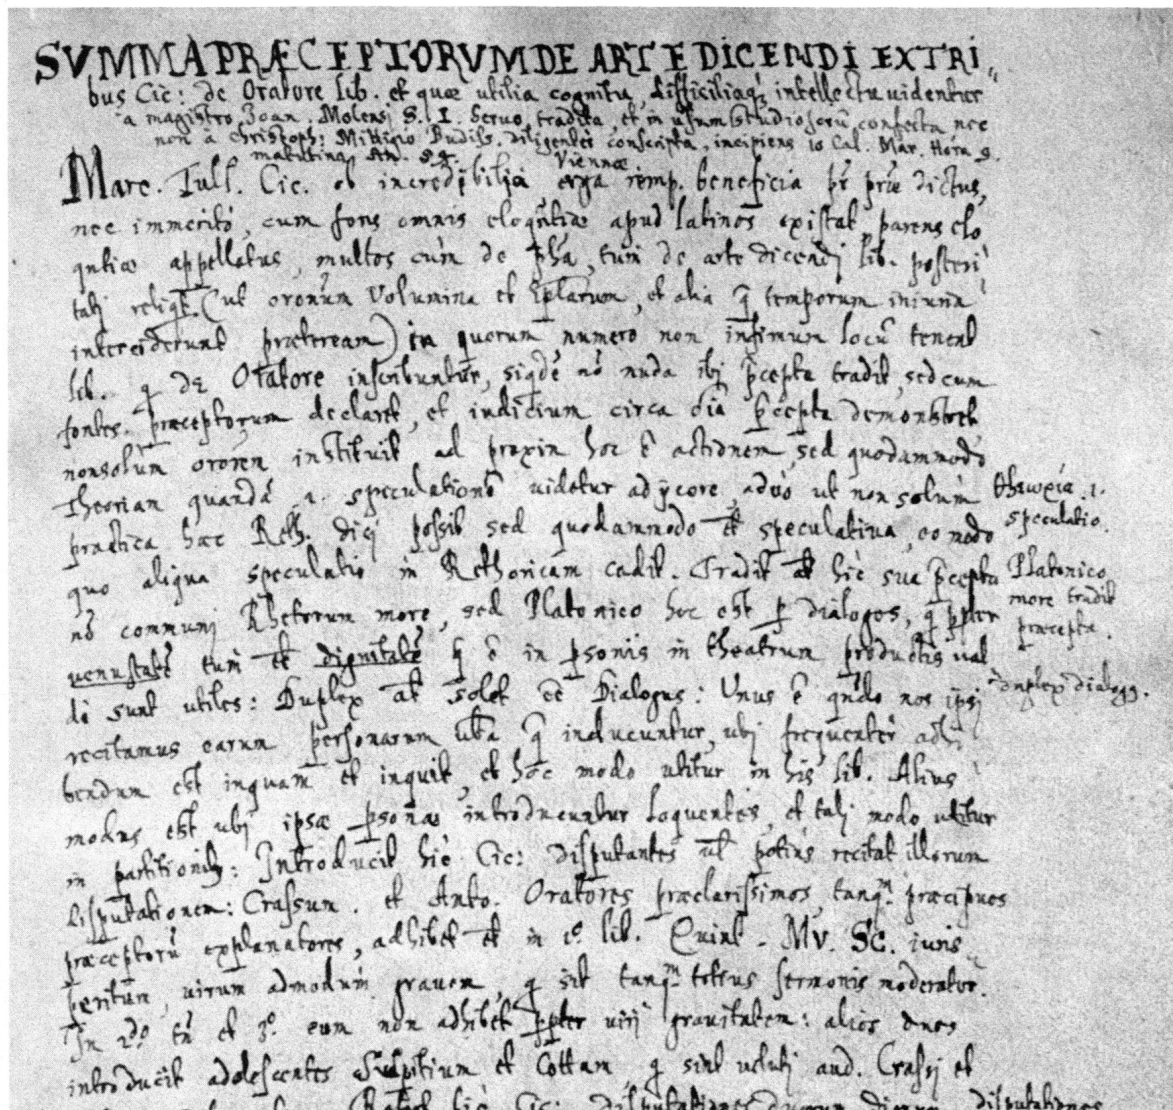 SVMMA PRÆCEPTORVM DE ARTE DICENDI EX TRI„
bus Cic: de Oratore lib. et quæ utilia cognitu, difficiliaq; intellectu uidentur
a magistro Joan. Molensi S. I. Seruo tradita, et in usum studiosorũ confecta nec
non à Christoph: Mittigio Budiss. diligenter conscripta, incipiens 10 Cal. Mar. Hora 9.
matutina An. 59. Viennæ
Marc. Tull. Cic. ob incredibilia erga remp. beneficia pr̃ præ dictus,
nec immeritò, cum fons omnis eloqñtiæ apud latinos existat, parens elo
qntiæ appellatus, multos cùm de pha, tùm de arte dicendj lib. posteri
tatj reliqt. (ut oronum Volumina et Eplarum, et alia q̃ temporum iniuria
interciderunt præteream) in quorum numero non infimum locũ tenent
lib. q̃ DE Oratore inscribuntur, siqdẽ nõ nuda ibj p̃cepta tradit, sed cum
fontes præceptorum declaret, et iudicium circa oĩa p̃cepta demonstret
nonsolum ororen instituit ad praxin hoc ẽ actionem, sed quodammodo
Theorian quandã .i. speculationẽ uidetur adijcere, adeò ut non solum
practica hæc Reth. dicj possit sed quodammodo et̃ speculatiua, eo modo
quo aliqua speculatio in Rethoricam cadit. Tradit aũt hic sua p̃cepta
nõ communj Rhetorum more, sed Platonico hoc est p dialogos, q̃ ppter
uenustatẽ tum et̃ dignitatẽ q̃ ẽ in psonis in theatrum productis ual
dè sunt utiles: Duplex aũt solet eẽ Dialogus: Unus ẽ qñdo nos ipsj
recitamus earum personarum uba q̃ inducuntur, ubj frequenter adhi
bendum est inquam et inquit, et hoc modo utitur in his lib. Alius
modus est ubj ipsæ psonæ introducuntur loquentes, et talj modo utitur
in partitionib: Introducit hic Cic: disputantes ul potius recitat illorum
disputationem: Crassum. et Anto. Oratores præclarissimos, tanq̃m præcipuos
præceptorũ explanatores, adhibet et̃ in 1º. lib. Quint. MV. SC. iuris
peritum, uirum admodum grauem, q̃ sit tanq̃m totius sermonis moderator.
In 2dº. tñ et 3º. eum non adhibet ppter uirj grauitatem: alios duos
introducit adolescentes Sulpitium et Cottam, q̃ sint uelutj aud. Crassj et
hic Cic: disputationes disputationes
θεωρία .i.
speculatio.
Platonico
more tradit
præcepta.
duplex dialogg.